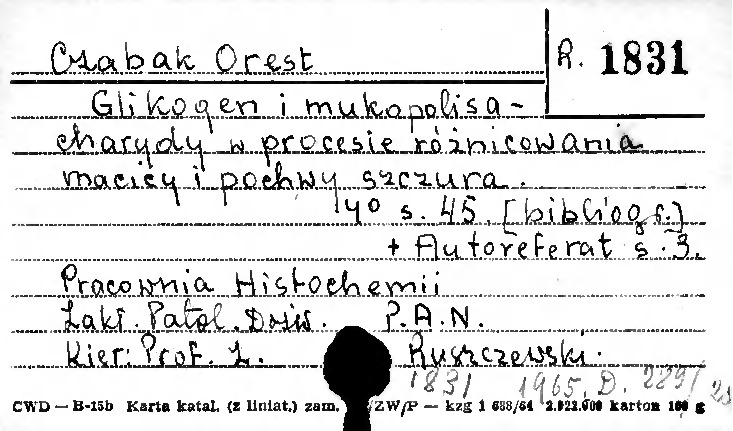 Czabak Orest
R. 1831
Glikogen i mukopolisa-
charydy w procesie różnicowania
macicy i pochwy szczura.
4° s. 45. [bibliogr.]
+ Autoreferat s. 3.
Pracownia Histochemii
Zakł. Patol. Dośw. P.A.N.
Kier: Prof. Z. Ruszczewski.
1831 1965. D. 289/
CWD — B-15b Karta katal. (z liniat.) zam. ZW/P — kzg 1 688/64 2.022.000 karton 160 g